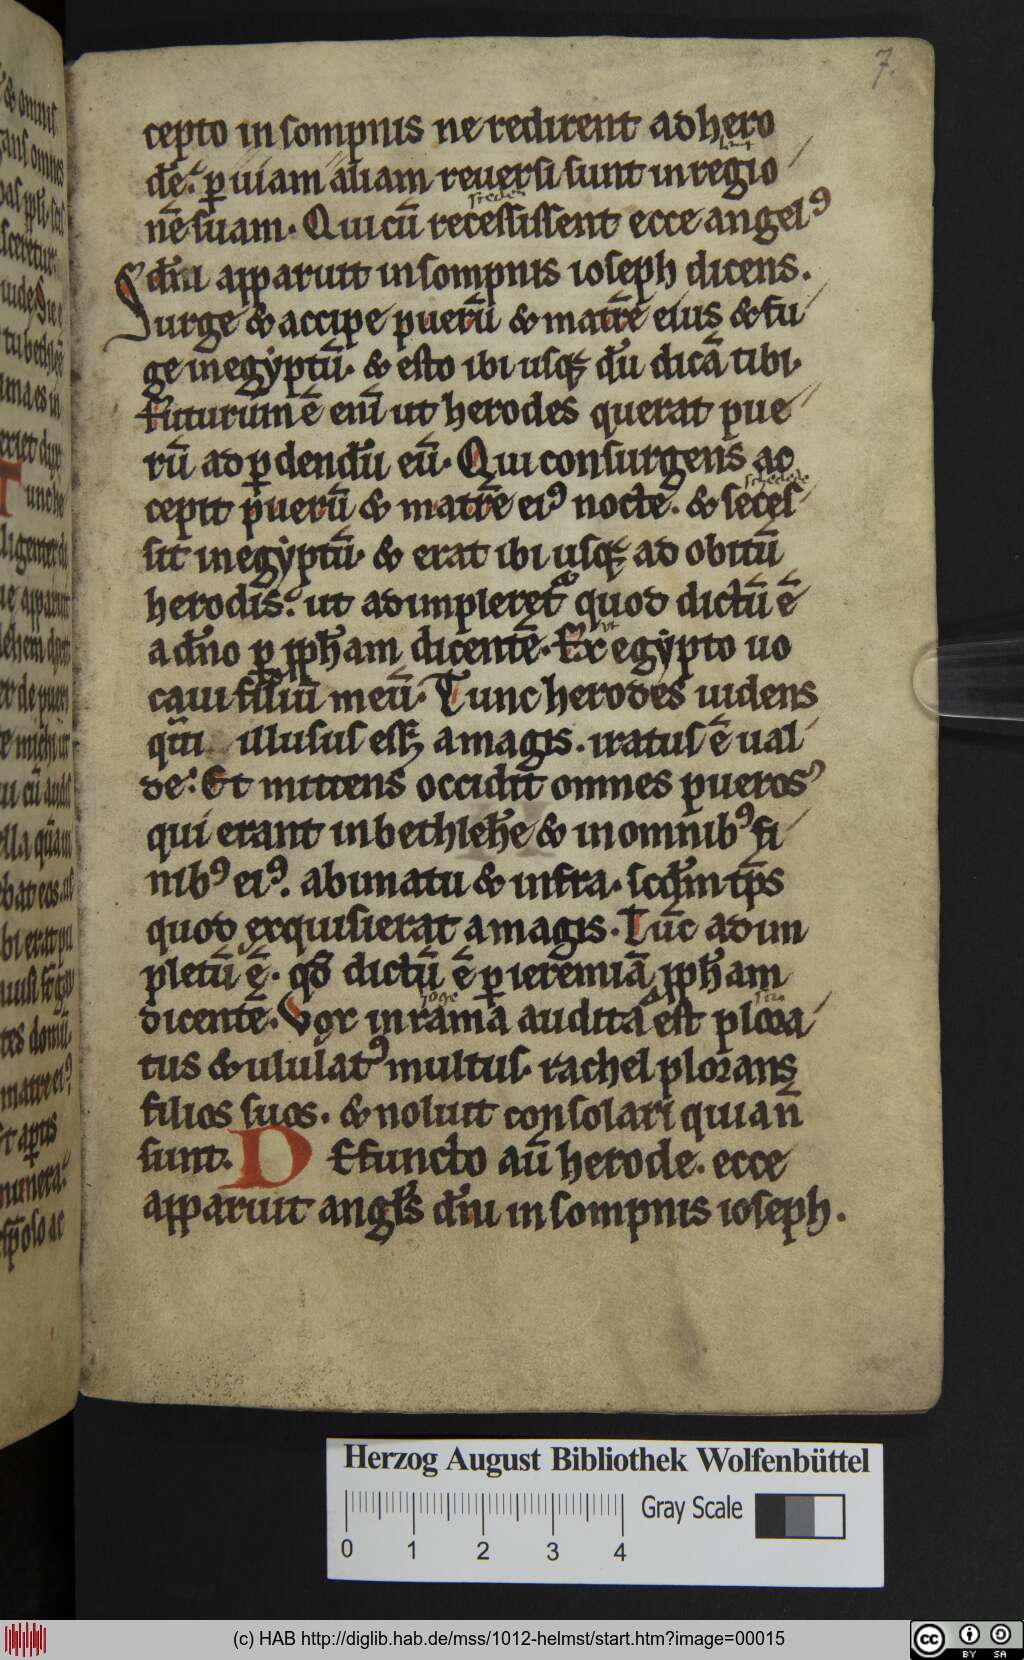 7.
cepto in sompnis ne redirent ad hero
dē. ꝑ uiam aliam reuersi sunt in regio
nē suam. Qui cū recessissent ecce angelꝰ
dn̄i apparuit in sompnis ioseph dicens.
Surge & accipe puerū & matrē eius & fu
ge in egyptū. & esto ibi usq; dū dicā tibi.
Futurum ē eni ut herodes querat pue
rū ad ꝑdendū eū. Qui consurgens ac
cepit puerū & matrē eiꝰ nocte. & seces
sit in egyptū. & erat ibi usq; ad obitū
herodis. ut adimpleret᷑ quod dictū ē
a dn̄o ꝑ ꝓph̄am dicentē. Ex egypto uo
caui filiū meū. Tunc herodes uidens
qm̄ illusus eēt a magis. iratus ē ual
de. Et mittens occidit omnes pueros
qui erant in bethleh̄e & in omnibꝰ fi
nibꝰ eiꝰ. a bimatu & infra. scd̄m tp̄s
quod exquisierat a magis. Tūc adim
pletū ē. qd̄ dictū ē ꝑ ieremiā ꝓph̄am
dicentē. Vox in rama audita est plora
tus & ululatꝰ multus. rachel plorans
filios suos. & noluit consolari quia n̄
sunt. DEfuncto aū herode. ecce
apparuit angl̄s dn̄i in sompnis ioseph.
Herzog August Bibliothek Wolfenbüttel
Gray Scale
0 1 2 3 4
(c) HAB http://diglib.hab.de/mss/1012-helmst/start.htm?image=00015
cc BY SA